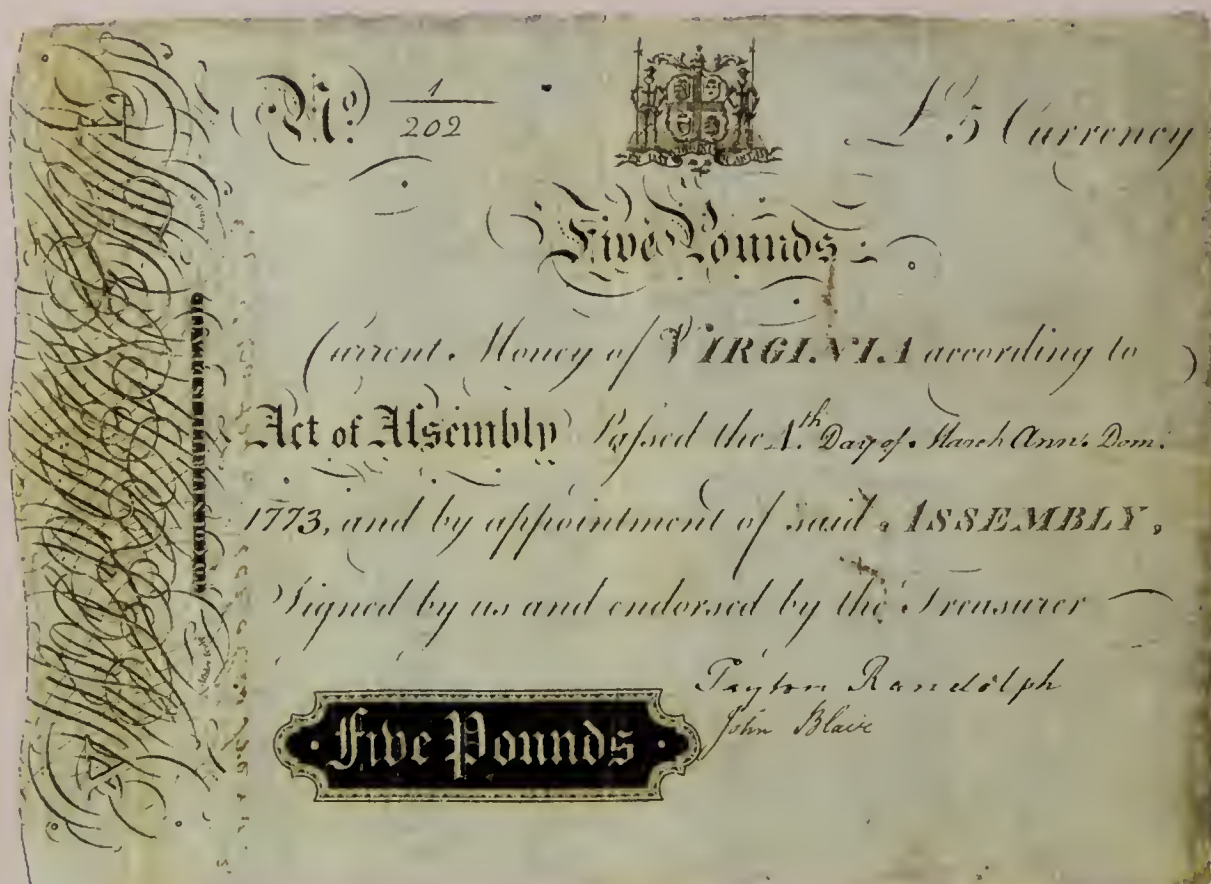 No. 1/202
£5 Currency
Five Pounds
Current Money of VIRGINIA according to
Act of Assembly Passed the 4.th Day of March Ann. Dom.
1773, and by appointment of said ASSEMBLY,
Signed by us and endorsed by the Treasurer
Peyton Randolph
John Blair
Five Pounds
TO COUNTERFEIT IS DEATH